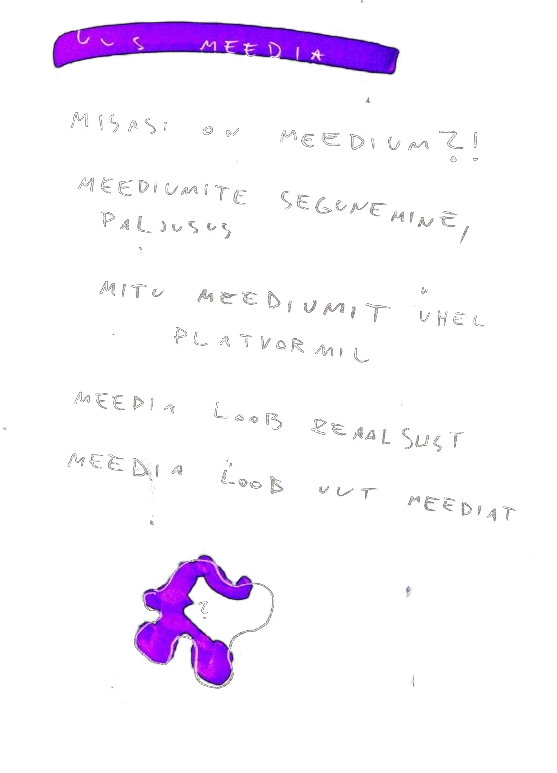 UUS MEEDIA
MISASI ON MEEDIUM?!
MEEDIUMITE SEGUNEMINE,
PALJUSUS
MITU MEEDIUMIT ÜHEL
PLATVORMIL
MEEDIA LOOB REAALSUST
MEEDIA LOOB UUT MEEDIAT
?